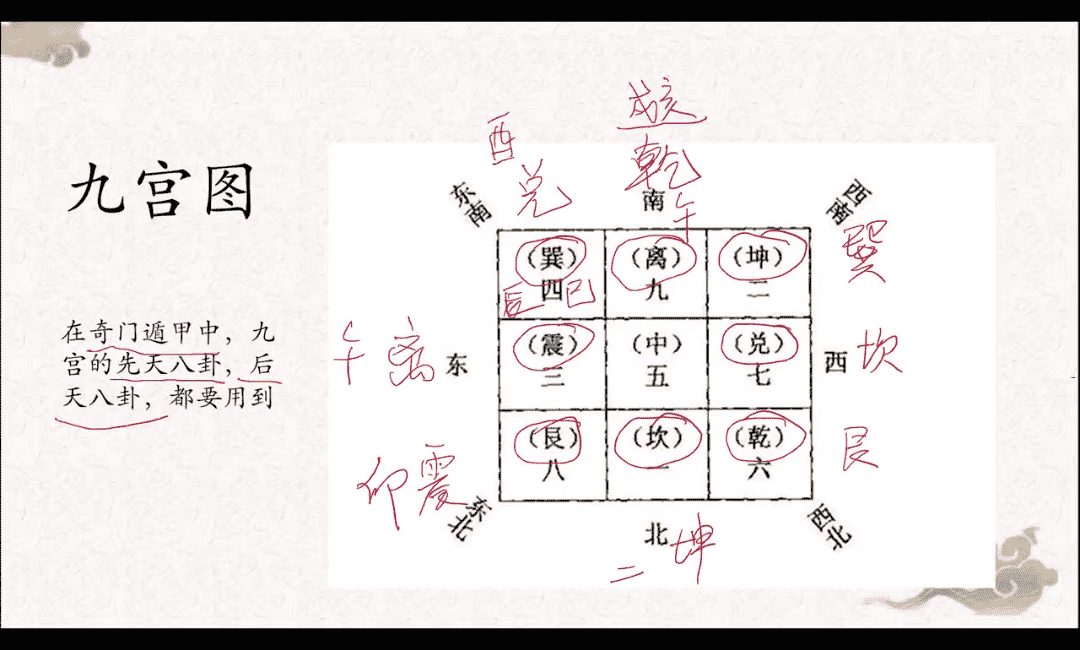 九宫图
在奇门遁甲中，九
宫的先天八卦，后
天八卦，都要用到
戌亥
酉
乾
兑
东南
南
西南
午
巽
（巽）
（离）
（坤）
辰 四 巳
九
二
午 离
东
（震）
（中）
（兑）
西
坎
三
五
七
（艮）
（坎）
（乾）
艮
八
一
六
卯 震
东北
北
坤
西北
二